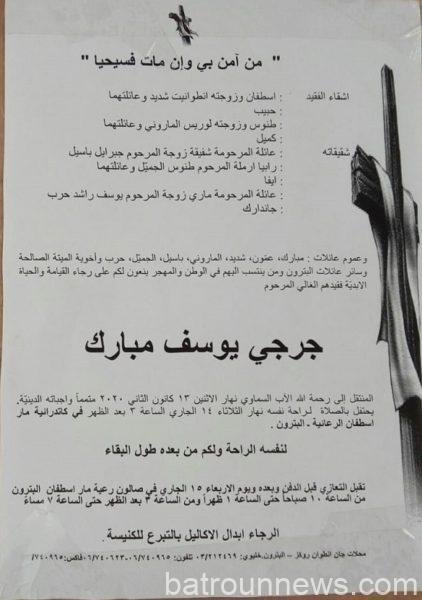 " من آمن بي وإن مات فسيحيا "
اشقاء الفقيد : اسطفان وزوجته انطوانيت شديد وعائلتهما
: حبيب
: طنوس وزوجته لوريس الماروني وعائلتهما
: كميل
شقيقاته : عائلة المرحومة شفيقة زوجة المرحوم جبرايل باسيل
: رابيا ارملة المرحوم طنوس الجميّل وعائلتهما
: ايفا
: عائلة المرحومة ماري زوجة المرحوم يوسف راشد حرب
: جاندارك
وعموم عائلات : مبارك، عقون، شديد، الماروني، باسيل، الجميّل، حرب وأخوية الميتة الصالحة
وسائر عائلات البترون ومن ينتسب اليهم في الوطن والمهجر ينعون لكم على رجاء القيامة والحياة
الابديّة فقيدهم الغالي المرحوم
جرجي يوسف مبارك
المنتقل إلى رحمة الله الأب السماوي نهار الاثنين ١٣ كانون الثاني ٢٠٢٠ متمماً واجباته الدينيّة.
يحتفل بالصلاة لراحة نفسه نهار الثلاثاء ١٤ الجاري الساعة ٣ بعد الظهر في كاتدرائية مار
اسطفان الرعائية - البترون .
لنفسه الراحة ولكم من بعده طول البقاء
تقبل التعازي قبل الدفن وبعده ويوم الاربعاء ١٥ الجاري في صالون رعية مار اسطفان البترون
من الساعة ١٠ صباحاً حتى الساعة ١ ظهراً ومن الساعة ٣ بعد الظهر حتى الساعة ٧ مساءً
الرجاء ابدال الاكاليل بالتبرع للكنيسة
محلات جان انطوان روكز – البترون.خليوي: ٠٣/٢١٢٤٦٩ تلفون: ٠٦/٧٤٠٩٦٥-٠٦/٧٤٠٦٢٣فاكس:٧٤٠٩٦٥/
batrounnews.com